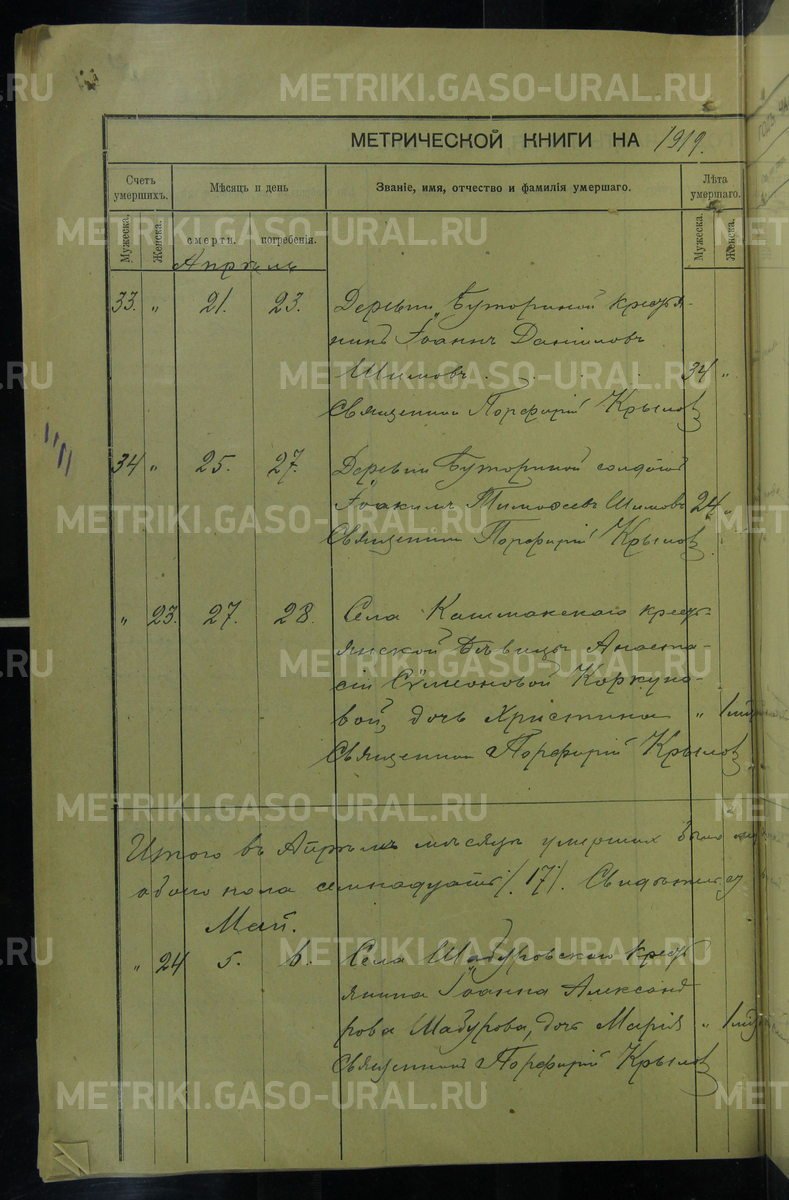 МЕТРИЧЕСКОЙ КНИГИ НА 1919.
Счетъ умершихъ.
Мѣсяцъ и день
Званіе, имя, отчество и фамилія умершаго.
Лѣта умершаго.
Мужеска.
Женска.
смерти.
погребенія.
Мужеска.
Женска.
Апрѣль
33. " 21. 23. Деревни Буториной кресть-
янинъ Іоаннъ Даніиловъ
Шимовъ . . . . 34 "
Священникъ Порфирій Крыловъ
34 " 25. 27. Деревни Буториной солдатъ
Іоакимъ Тимоѳеевъ Шимовъ 24 "
Священникъ Порфирій Крыловъ
" 23. 27. 28. Села кресть-
янской дѣвицы Анаста-
сіи Сѷмеоновой Коркуно-
вой, дочь Христина " 1
Священникъ Порфирій Крыловъ
Итого въ Апрѣлѣ мѣсяцѣ умершихъ было
обоего пола семнадцать /17/.
Май.
" 24 5. 6. Села Шабуровскаго кресть
янина Іоанна Александ
рова Шабурова, дочь Марія " 1
Священникъ Порфирій Крыловъ
METRIKI.GASO-URAL.RU